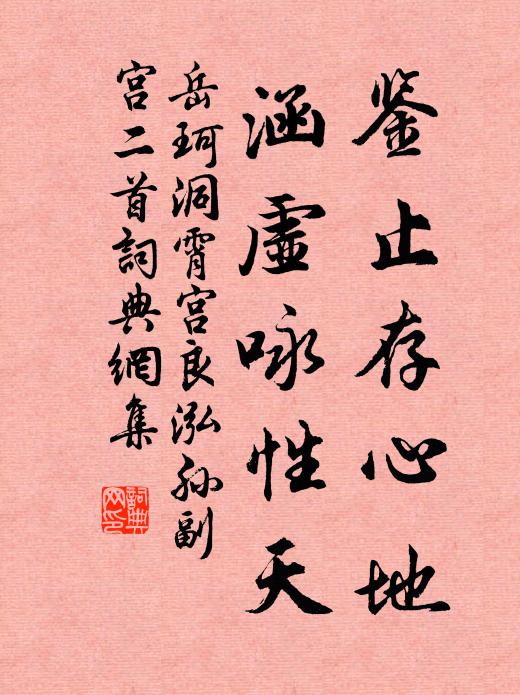 鉴止存心地
涵虚咏性天
岳珂洞霄宫良泓孙副
宫二首詞典網集
詞典
网印